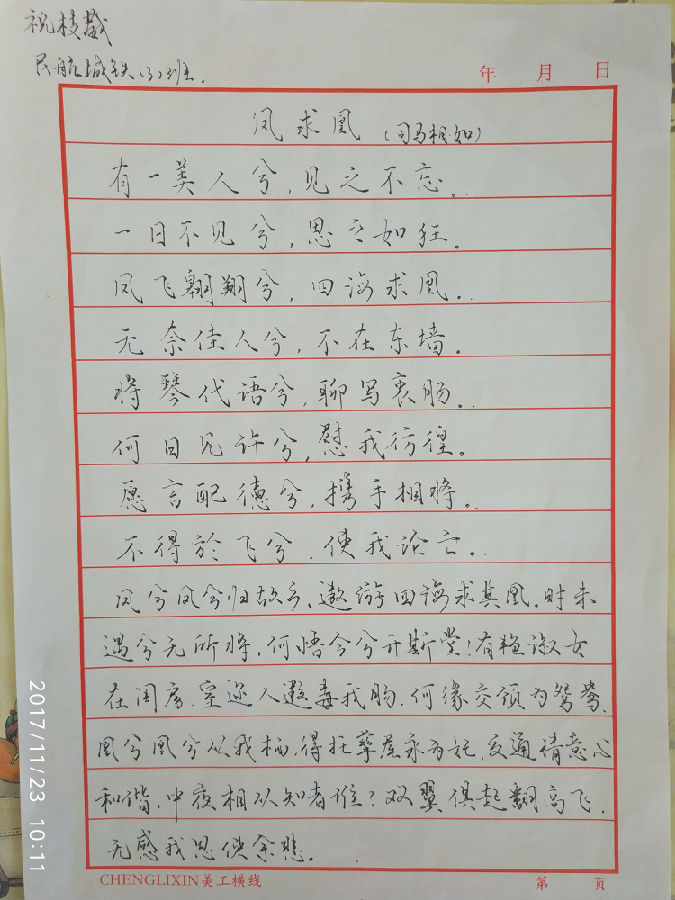 祝枝
民航城铁(3)班.
年 月 日
凤求凰 (司马相如)
有一美人兮,见之不忘。
一日不见兮,思之如狂.
凤飞翱翔兮,四海求凰。
无奈佳人兮,不在东墙。
将琴代语兮,聊写衷肠。
何日见许兮,慰我彷徨。
愿言配德兮,携手相将。
不得於飞兮,使我沦亡。
凤兮凤兮归故乡,遨游四海求其凰.时未
遇兮无所将,何悟今兮升斯堂!有艳淑女
在闺房,室迩人遐毒我肠.何缘交颈为鸳鸯,
凰兮凰兮从我栖,得托孳尾永为妃,交通情意心
和谐,中夜相从知者谁?双翼俱起翻高飞,
无感我思使余悲.
CHENGLIXIN美工横线
第 页
2017/11/23 10:11